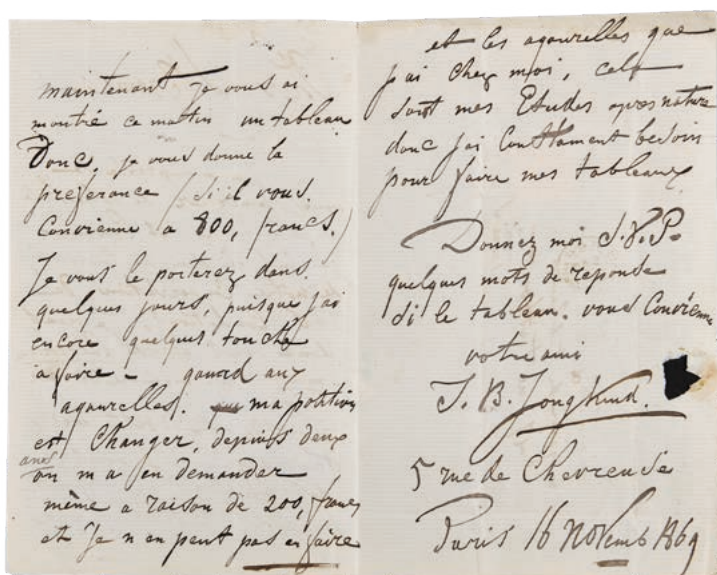 maintenant je vous ai
montré ce mattin un tableau
Donc, je vous donne la
preferance (si il vous
Convienne a 800, francs.)
Je vous le porterez dans
quelques jours, puisque j'ai
encore quelques touche
a faire - quand aux
aquarelles. ma position
est Changer, depuis deux
ans
on m a en demander
même a raison de 200, francs
et Je n en peut pas en faire
et les aquarelles que
j'ai chez moi, cela
sont mes Etudes apres nature
donc j'ai Constament besoin
pour faire mes tableaux
Donnez moi S.V.P.
quelques mots de reponse
si le tableau. vous Convienne
votre ami
J. B. Jongkind.
5 rue de Chevreuse
Paris 16 Novemb 1869